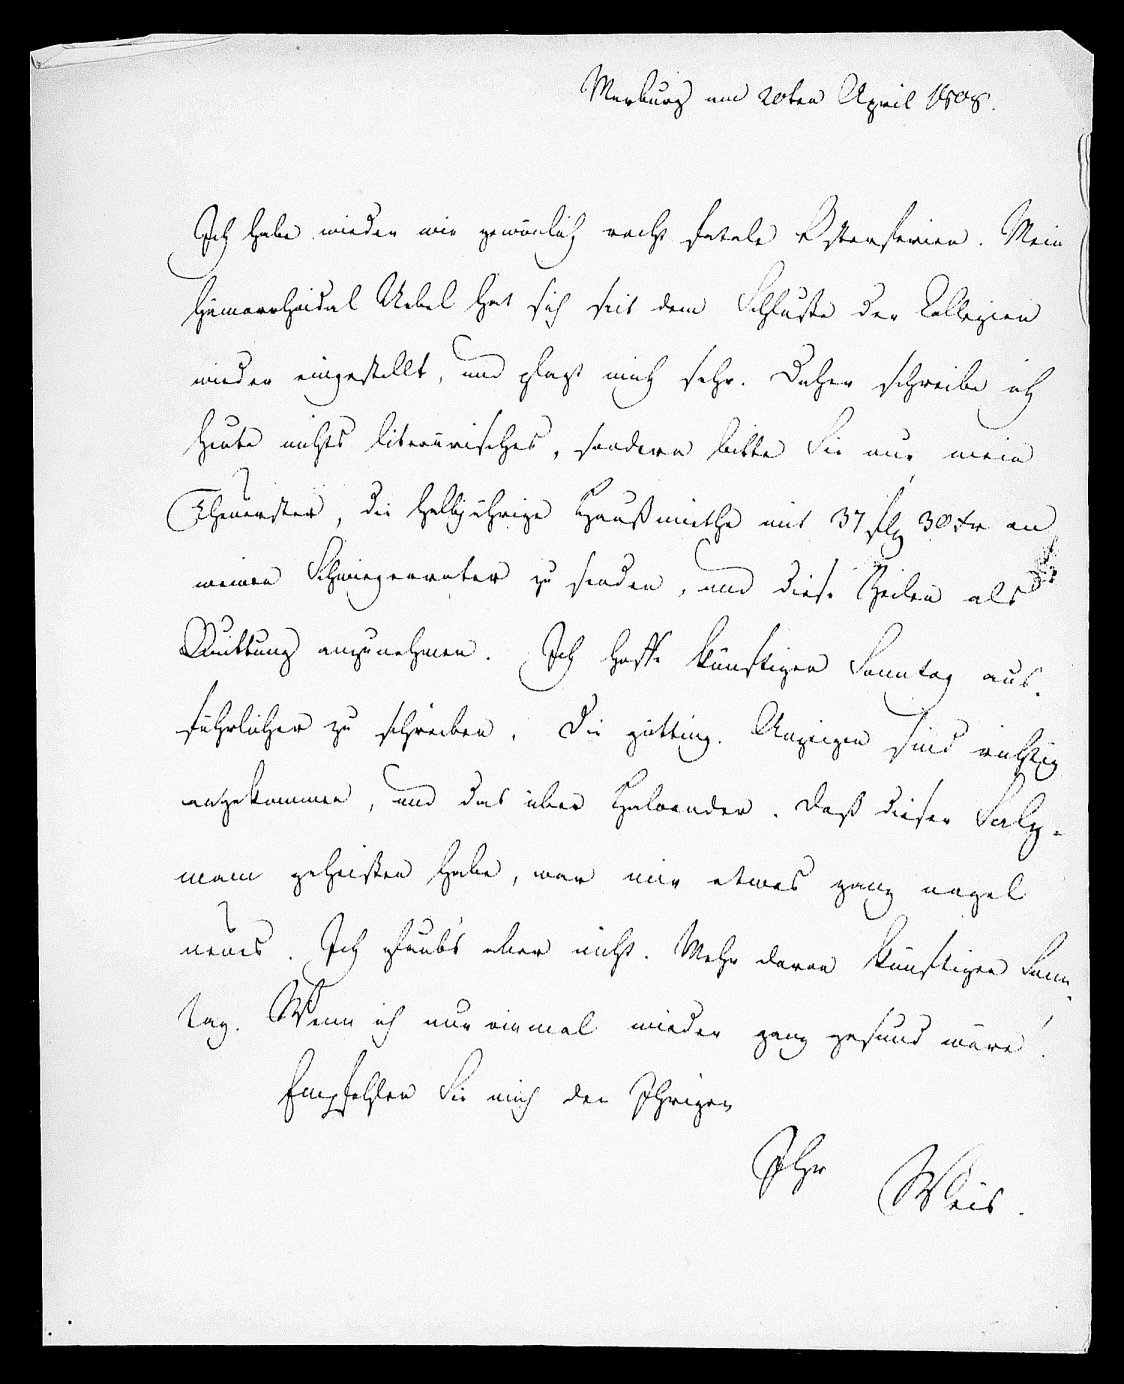 Marburg am 20ten April 1808.
Ich habe wieder wie gewönlich recht fatale Osterferien. Mein
Hämorrhoidal Uebel hat sich seit dem Schluße der Collegien
wieder eingestellt, und plagt mich sehr. Daher schreibe ich
heute nichts literärisches, sondern bitte Sie nur, mein
Theuerster, die halbjährige Haußmiethe mit 37 flg 30 Xr an
meinen Schwiegervater zu senden, und diese Zeilen als
Quittung anzunehmen. Ich hoffe künftigen Sonntag aus-
führlicher zu schreiben. Die götting. Anzeigen sind richtig
angekommen, und das über Haloander. Daß dieser Salz-
mann geheißen habe, war mir etwas ganz nagel
neues. Ich glaub's aber nicht. Mehr davon künftigen Sonn-
tag. Wenn ich nur einmal wieder ganz gesund wäre!
Empfehlen Sie mich den Ihrigen
Ihr Weis.